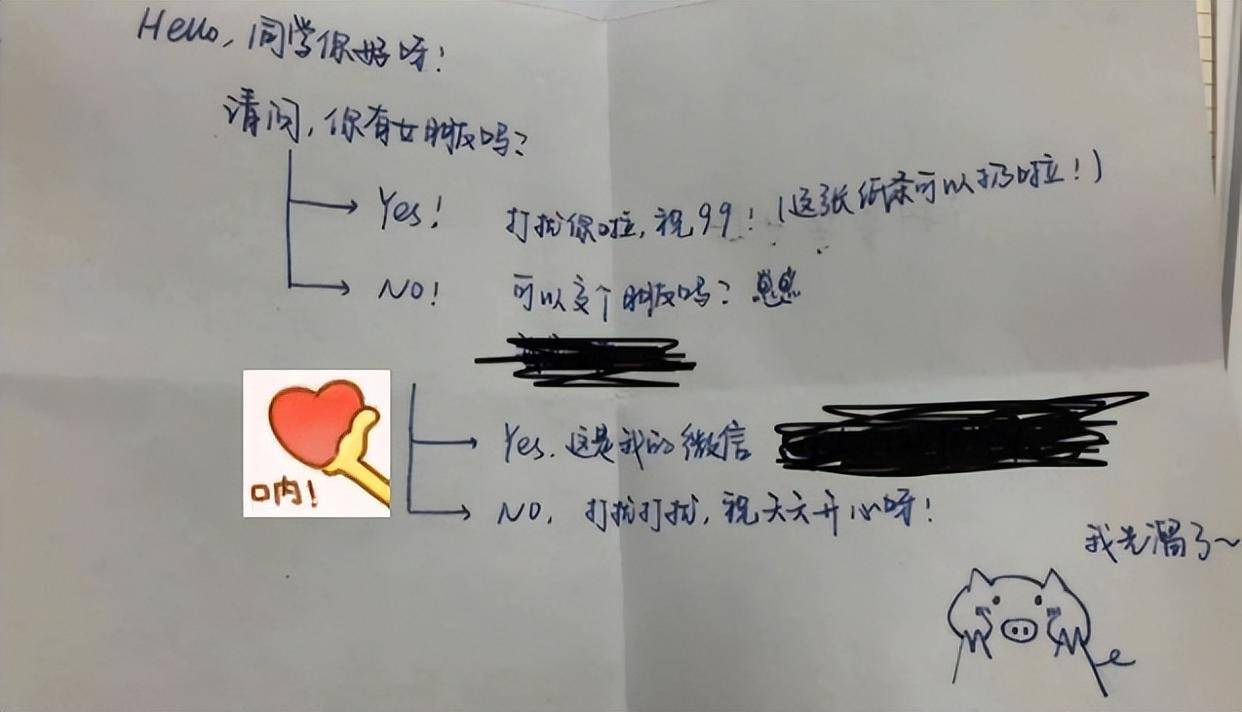 Hello, 同学你好呀!
请问, 你有女朋友吗?
Yes! 打扰你啦, 祝99! (这张纸条可以扔啦!)
NO! 可以交个朋友吗?
Yes. 这是我的微信
呐!
NO, 打扰打扰, 祝天天开心呀!
我先溜了~